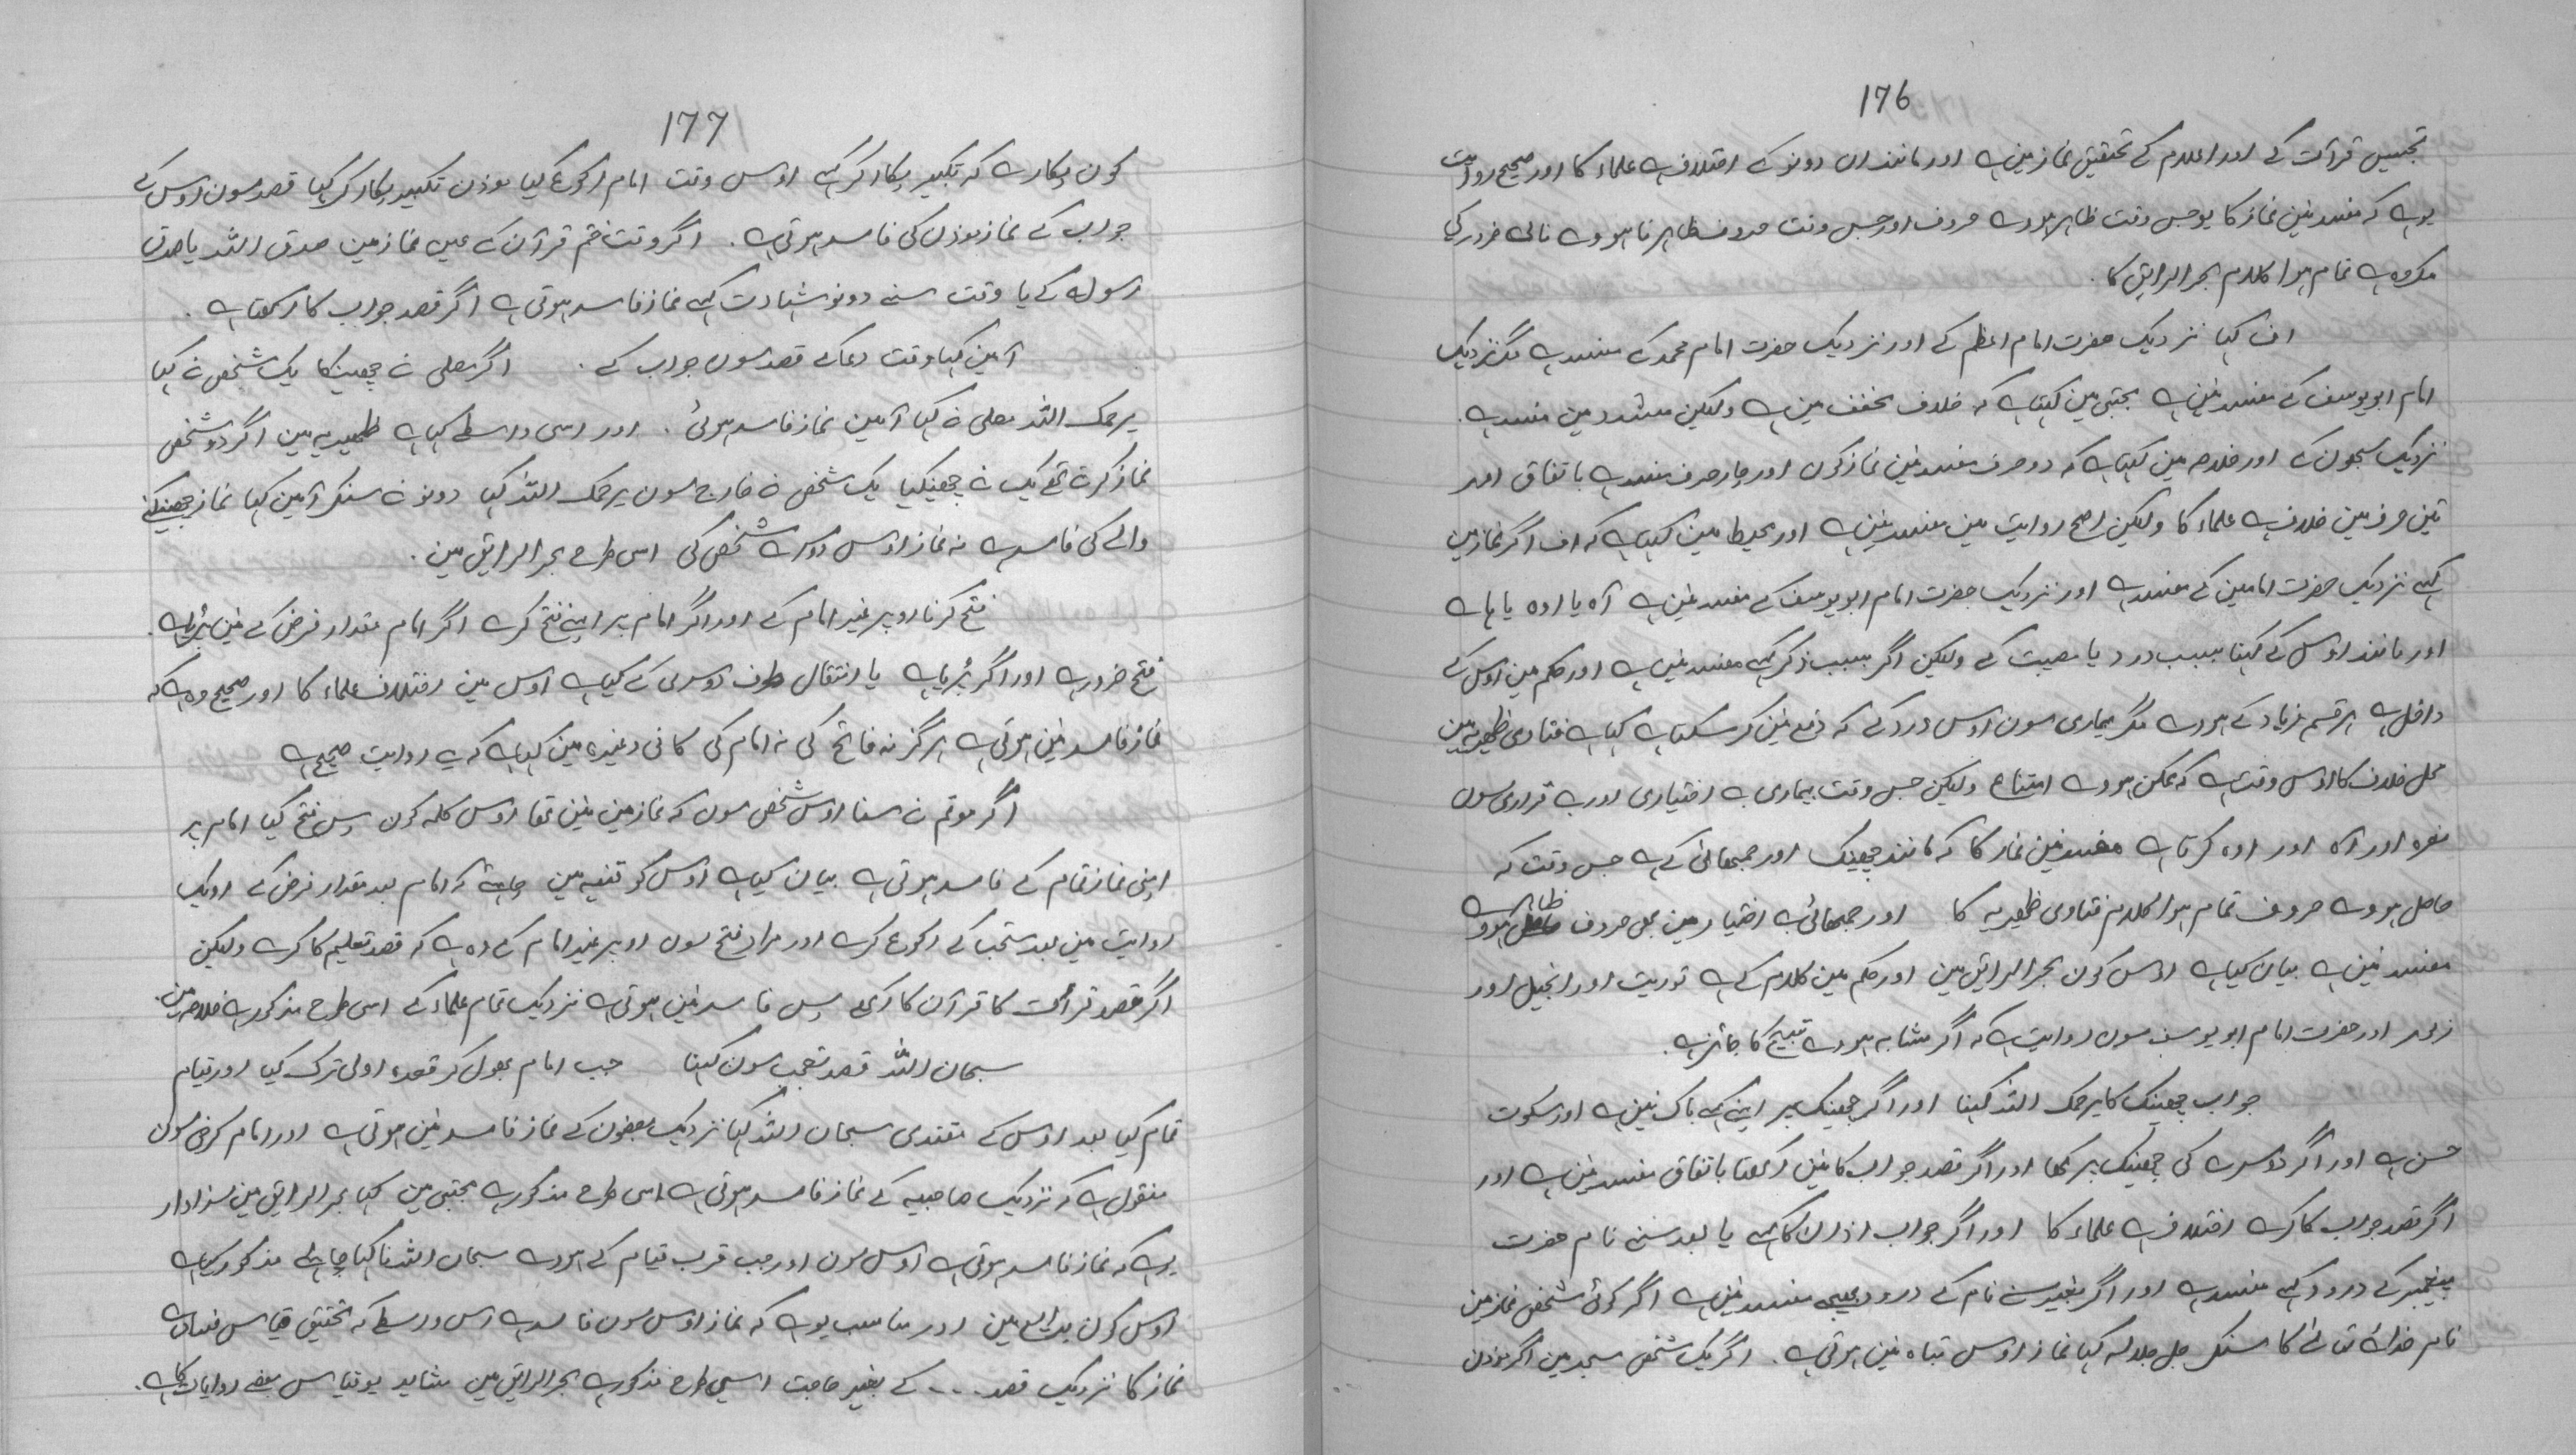 176
تجسیس قرآت کے اور اعلام کے تحقیق نماز مین ہے اور مانند ان دونو کے اختلاف ہے علماء کا اور صحیح روایت
یوہے کہ مفسد نین نماز کا یو جس وقت ظاہر ہووے حروف اور جس وقت حروف ظاہر نا ہووے نالی ضرور کی
مکروہ ہے تمام ہوا کلام بحر الرایق کا .
اف کہنا نزدیک حضرت امام اعظم کے اور نزدیک حضرت امام محمد کے مفسد ہے مگر نزدیک
امام ابو یوسف کے مفسد نین ہے مجتبی مین کہتا ہے کہ خلاف مخفف مین ہے ولیکن مشدد مین مفسد ہے .
نزدیک سبھون کے اور خلاصہ مین کہتا ہے کہ دو حرف مفسد نین نماز کون اور چار حرف مفسد ہے باتفاق اور
تین حرف مین خلاف ہے علماء کا ولیکن اصح روایت مین مفسد نین ہے اور محیط مین کہتا ہے کہ اف اگر نماز مین
کہے نزدیک حضرت امامین کے مفسد ہے اور نزدیک حضرت امام ابو یوسف کے مفسد نین ہے آہ یا اوہ یا ہاے
اور مانند اوس کے کہنا بسبب درد یا مصیبت کے ولیکن اگر بسبب ذکر کہے مفسد نین ہے اور حکم مین اوس کے
داخل ہے ہر قسم فریاد کے ہووے مگر بیماری سون اوس درد کے کہ دفع نین کر سکتا ہے کہا ہے فتاوی ظہیریہ مین
محل خلاف کا اوس وقت ہے کہ ممکن ہووے امتناع ولیکن جس وقت بیماری بے اختیاری اور بے قراری سون
نعرہ اور آہ اور اوہ کرتا ہے مفسد نین نماز کا کہ مانند چھینک اور جمھائی کے ہے جس وقت کہ
حاصل ہووے حروف تمام ہوا کلام فتاوی ظہیریہ کا اور جمھائی بے اختیار مین بھی حروف ظاہر ہووے
مفسد نین ہے بیان کیا ہے اوس کون بحر الرایق مین اور حکم مین کلام کے ہے توریت اور انجیل اور
زبور اور حضرت امام ابو یوسف سون روایت ہے کہ اگر مشابہ ہووے تسبیح کا جائز ہے .
جواب چھینک کا یرحمک اللہ کہنا اور اگر چھینک پر اپنے کہے باک نین ہے اور سکوت
حسن ہے اور اگر دوسرے کی چھینک پر کہا اور اگر قصد جواب کا نین رکھتا باتفاق مفسد نین ہے اور
اگر قصد جواب کا کرے اختلاف ہے علماء کا اور اگر جواب اذان کا کہے یا بعد سننے نام حضرت
پیغمبر کے درود کہے مفسد ہے اور اگر بغیر سنے نام کے درود بھیجے مفسد نین ہے اگر کوئی شخص نماز مین
نام خدائے تعالی کا سنکر جل جلالہ کہا نماز اوس تباہ نین ہوتی ہے . اگر یک شخص مسجد مین اگر مؤذن
177
کون پکارے کہ تکبیر پکار کر کہے اوس وقت امام رکوع کیا مؤذن تکبیر پکار کر کہا قصد سون اوس کے
جواب کے نماز مؤذن کی فاسد ہوتی ہے . اگر وقت ختم قرآن کے عین نماز مین صدق اللہ یا صدق
رسول کے یا وقت سنے دونو شہادت کہے نماز فاسد ہوتی ہے اگر قصد جواب کا رکھتا ہے .
آمین کہنا وقت دعا کے قصد سون جواب کے . اگر مصلی نے چھینکا یک شخص نے کہا
یرحمک اللہ مصلی نے کہا آمین نماز فاسد ہوئی . اور اسی واسطے کہا ہے ظہیریہ مین اگر دو شخص
نماز کرتے تھے یک نے چھینکیا یک شخص نے خارج سون یرحمک اللہ کہا دونو نے سنکر آمین کہا نماز چھینکنے
والے کی فاسد ہے نہ نماز اوس دوسرے شخص کی اسی طرح بحر الرایق مین .
فتح کرنا اوپر غیر امام کے اور اگر امام پر اپنے فتح کرے اگر امام مقدار فرض کے نین پڑیا ہے .
فتح ضرور ہے اور اگر پڑیا ہے یا انتقال طرف دوسری کے کیا ہے اوس مین اختلاف علماء کا اور صحیح وہ ہے کہ
نماز فاسد نین ہوتی ہے ہرگز نہ فاتح کی نہ امام کی کافی وغیرہ مین کہا ہے کہ یہ روایت صحیح ہے
اگر مؤتم نے سنا اوس شخص سون کہ نماز مین نین تھا اوس کلمہ کون پس فتح کیا امام پر
اپنی نماز تمام کے فاسد ہوتی ہے بیان کیا ہے اوس کو قنیہ مین چاہئے کہ امام بعد مقدار فرض کے اور یک
روایت مین بعد مستحب کے رکوع کرے اور مراد فتح سون اوپر غیر امام کے وہ ہے کہ قصد تعلیم کا کرے ولیکن
اگر قصد قرآت کا قرآن کا رکھے پس فاسد نین ہوتی ہے نزدیک تمام علماء کے اسی طرح مذکور ہے خلاصہ مین .
سبحان اللہ قصد تعجب سون کہنا جب امام بھول کر قعدہ اولی ترک کیا اور قیام
تمام کیا بعد اوس کے مقتدی سبحان اللہ کہا نزدیک بعضون کے نماز فاسد نین ہوتی ہے اور امام کرخی سون
منقول ہے کہ نزدیک صاحبیہ کے نماز فاسد ہوتی ہے اسی طرح مذکور ہے مجتبی مین کہا بحر الرایق مین سزاوار
یوہے کہ نماز فاسد ہوتی ہے اوس سون اور جب قرب قیام کے ہووے سبحان اللہ نا کہنا چاہئے مذکور کیا ہے
اوس کون بدایع مین اور مناسب یوہے کہ نماز اوس سون فاسد ہے اس واسطے کہ تحقیق قیاس فساد ہے
نماز کا نزدیک قصد ... کے بغیر حاجت اسی طرح مذکور ہے بحر الرایق مین شاید یو قیاس بعضے روایات کا ہے .